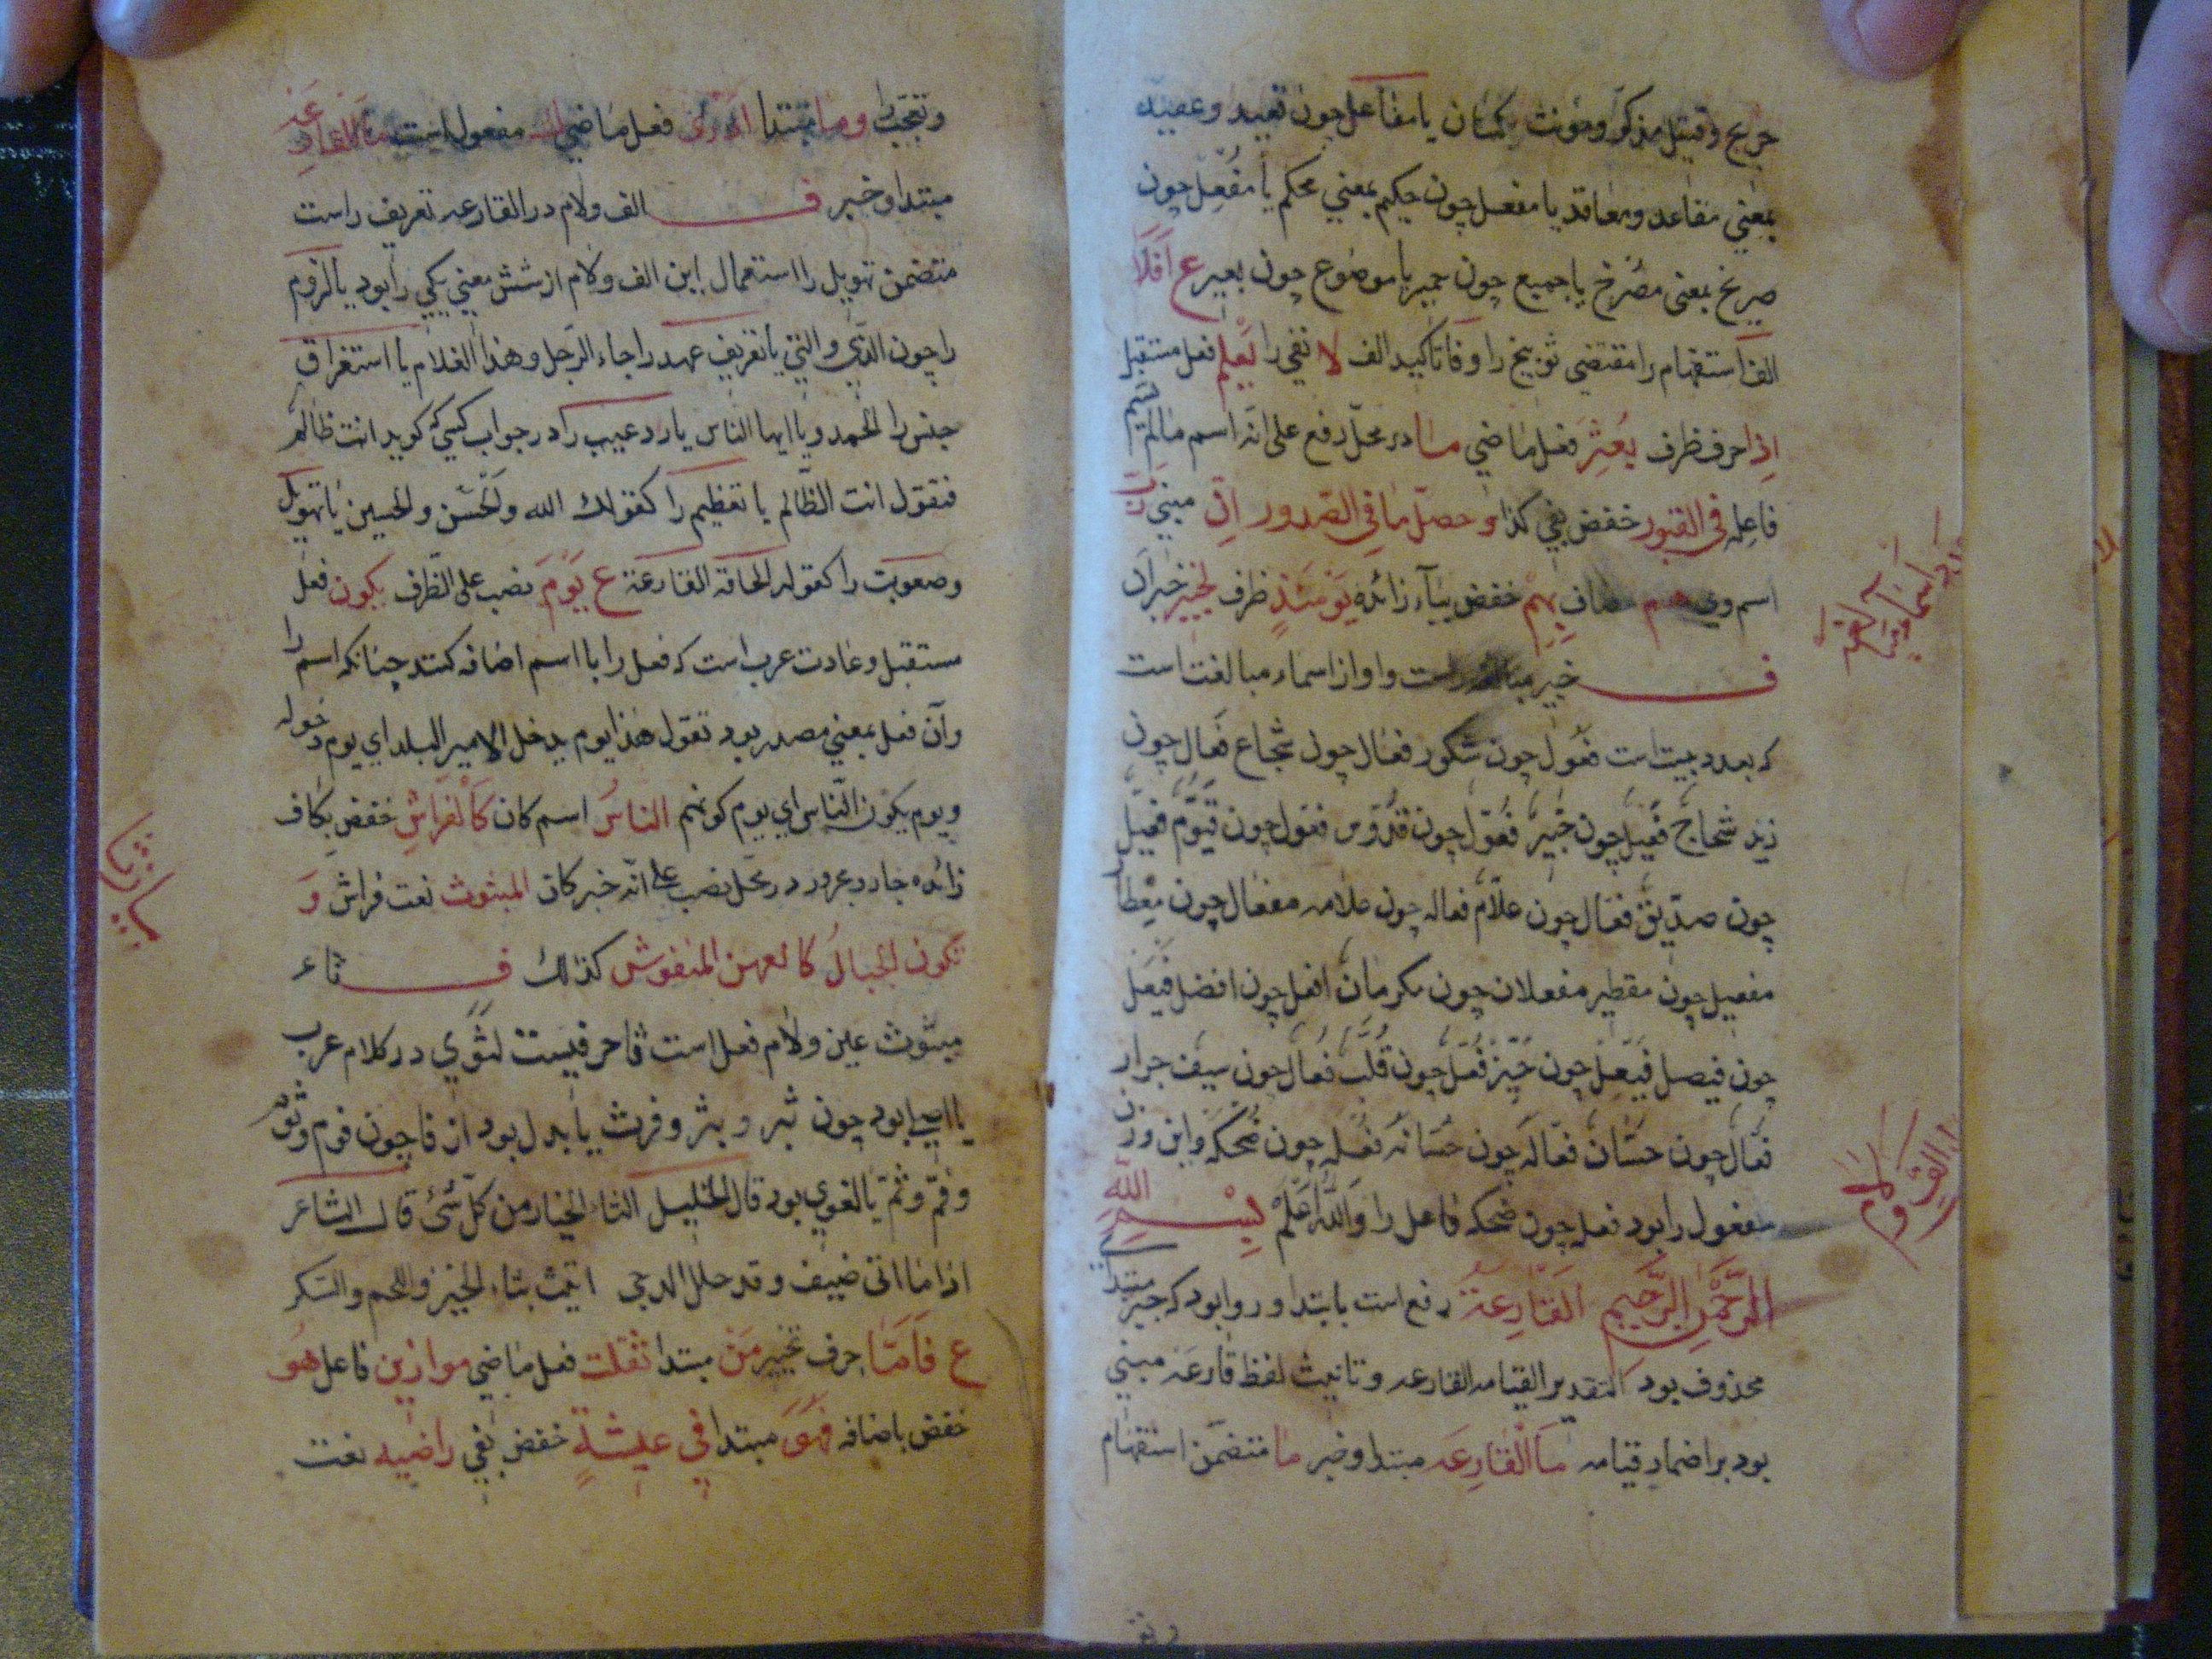 جریح وقتیل مذکر ومؤنث یکسان یا مفاعل چون قعید وعقید
بمعنی مقاعد ومعاقد یا مفعل چون حکیم بمعنی محکم یا مفعل چون
صریخ بمعنی مصرخ یا جمیع چون حمیر یا موضوع چون بعیر ع أفلا
الف استفهام را مقتضی توبیخ را وفا تاکید الف لا نفی را یعلم فعل مستقبل
اذا حرف ظرف بعثر فعل ماضی ما در محل رفع علی انه اسم مالم یسم
فاعله فی القبور خفض بفی کذا وحصل ما فی الصدور ان مبنی رب
اسم وی هم مضاف بهم خفض بباء زائده یومئذ ظرف لخبیر خبر ان
ف خبیر مبالغه راست واو از اسماء مبالغت است
که بعدد بیست است فعول چون شکور فعال چون شجاع فعال چون
زید شحاج فعیل چون خبیر فعول چون قدوس فعول چون قیوم فعیل
چون صدیق فعال چون علام فعاله چون علامه مفعال چون معطار
مفعیل چون مقطیر مفعلان چون مکرمان افعل چون افضل فیعل
چون فیصل فیعل چون خیر فعل چون قلب فعال چون سیف جرار
فعال چون حسان فعاله چون حسانه فعله چون ضحکه واین وزن
مفعول را بود فعله چون ضحکه فاعل را والله أعلم بسم الله
الرحمن الرحیم القارعة رفع است بابتدا وروا بود که خبر مبتدای
محذوف بود التقدیر القیامه القارعه وتانیث لفظ قارعه مبنی
بود بر اضمار قیامه ما القارعه مبتدا وخبر ما متضمن استفهام
وتعجب را وما مبتدا ادری فعل ماضی ك مفعول است ما القارعة
مبتدا وخبر ف الف ولام در القارعه تعریف راست
متضمن تهویل را استعمال این الف ولام از شش معنی یکی را بود یا لزوم
را چون الذی والتی یا تعریف عهد را جاء الرجل وهذا الغلام یا استغراق
جنس را الحمد ویا ایها الناس یا رد عیب را در جواب کسی که گوید انت ظالم
فتقول انت الظالم یا تعظیم را کقولك الله والحسن والحسین یا تهویل
وصعوبت را کقوله الحاقة القارعة ع یوم نصب علی الظرف یکون فعل
مستقبل وعادت عرب است که فعل را با اسم اضافه کنند چنانکه اسم را
وآن فعل بمعنی مصدر بود تقول هذا یوم یدخل الامیر البلد ای یوم دخوله
ویوم یکون الناس ای یوم کونهم الناس اسم کان کالفراش خفض بکاف
زائده جار ومجرور در محل نصب علی انه خبر کان المبثوث نعت فراش و
تکون الجبال کالعهن المنفوش کذلك ف ثاء
مبثوث عین ولام فعل است ثا حرفیست لثوی در کلام عرب
یا اصلی بود چون ثبر وبثر وفرث یا بدل بود از فا چون فوم وثوم
وفم وثم یا لغوی بود قال الخلیل الثاء الخیار من کل شیء قال الشاعر
اذا ما اتی ضیف وقد حلل الدجی اتیت بثاء الخبز واللحم والسکر
ع فاما حرف تخییر من مبتدا ثقلت فعل ماضی موازین فاعل هو
خفض باضافه فهو مبتدا فی عیشة خفض بفی راضیه نعت